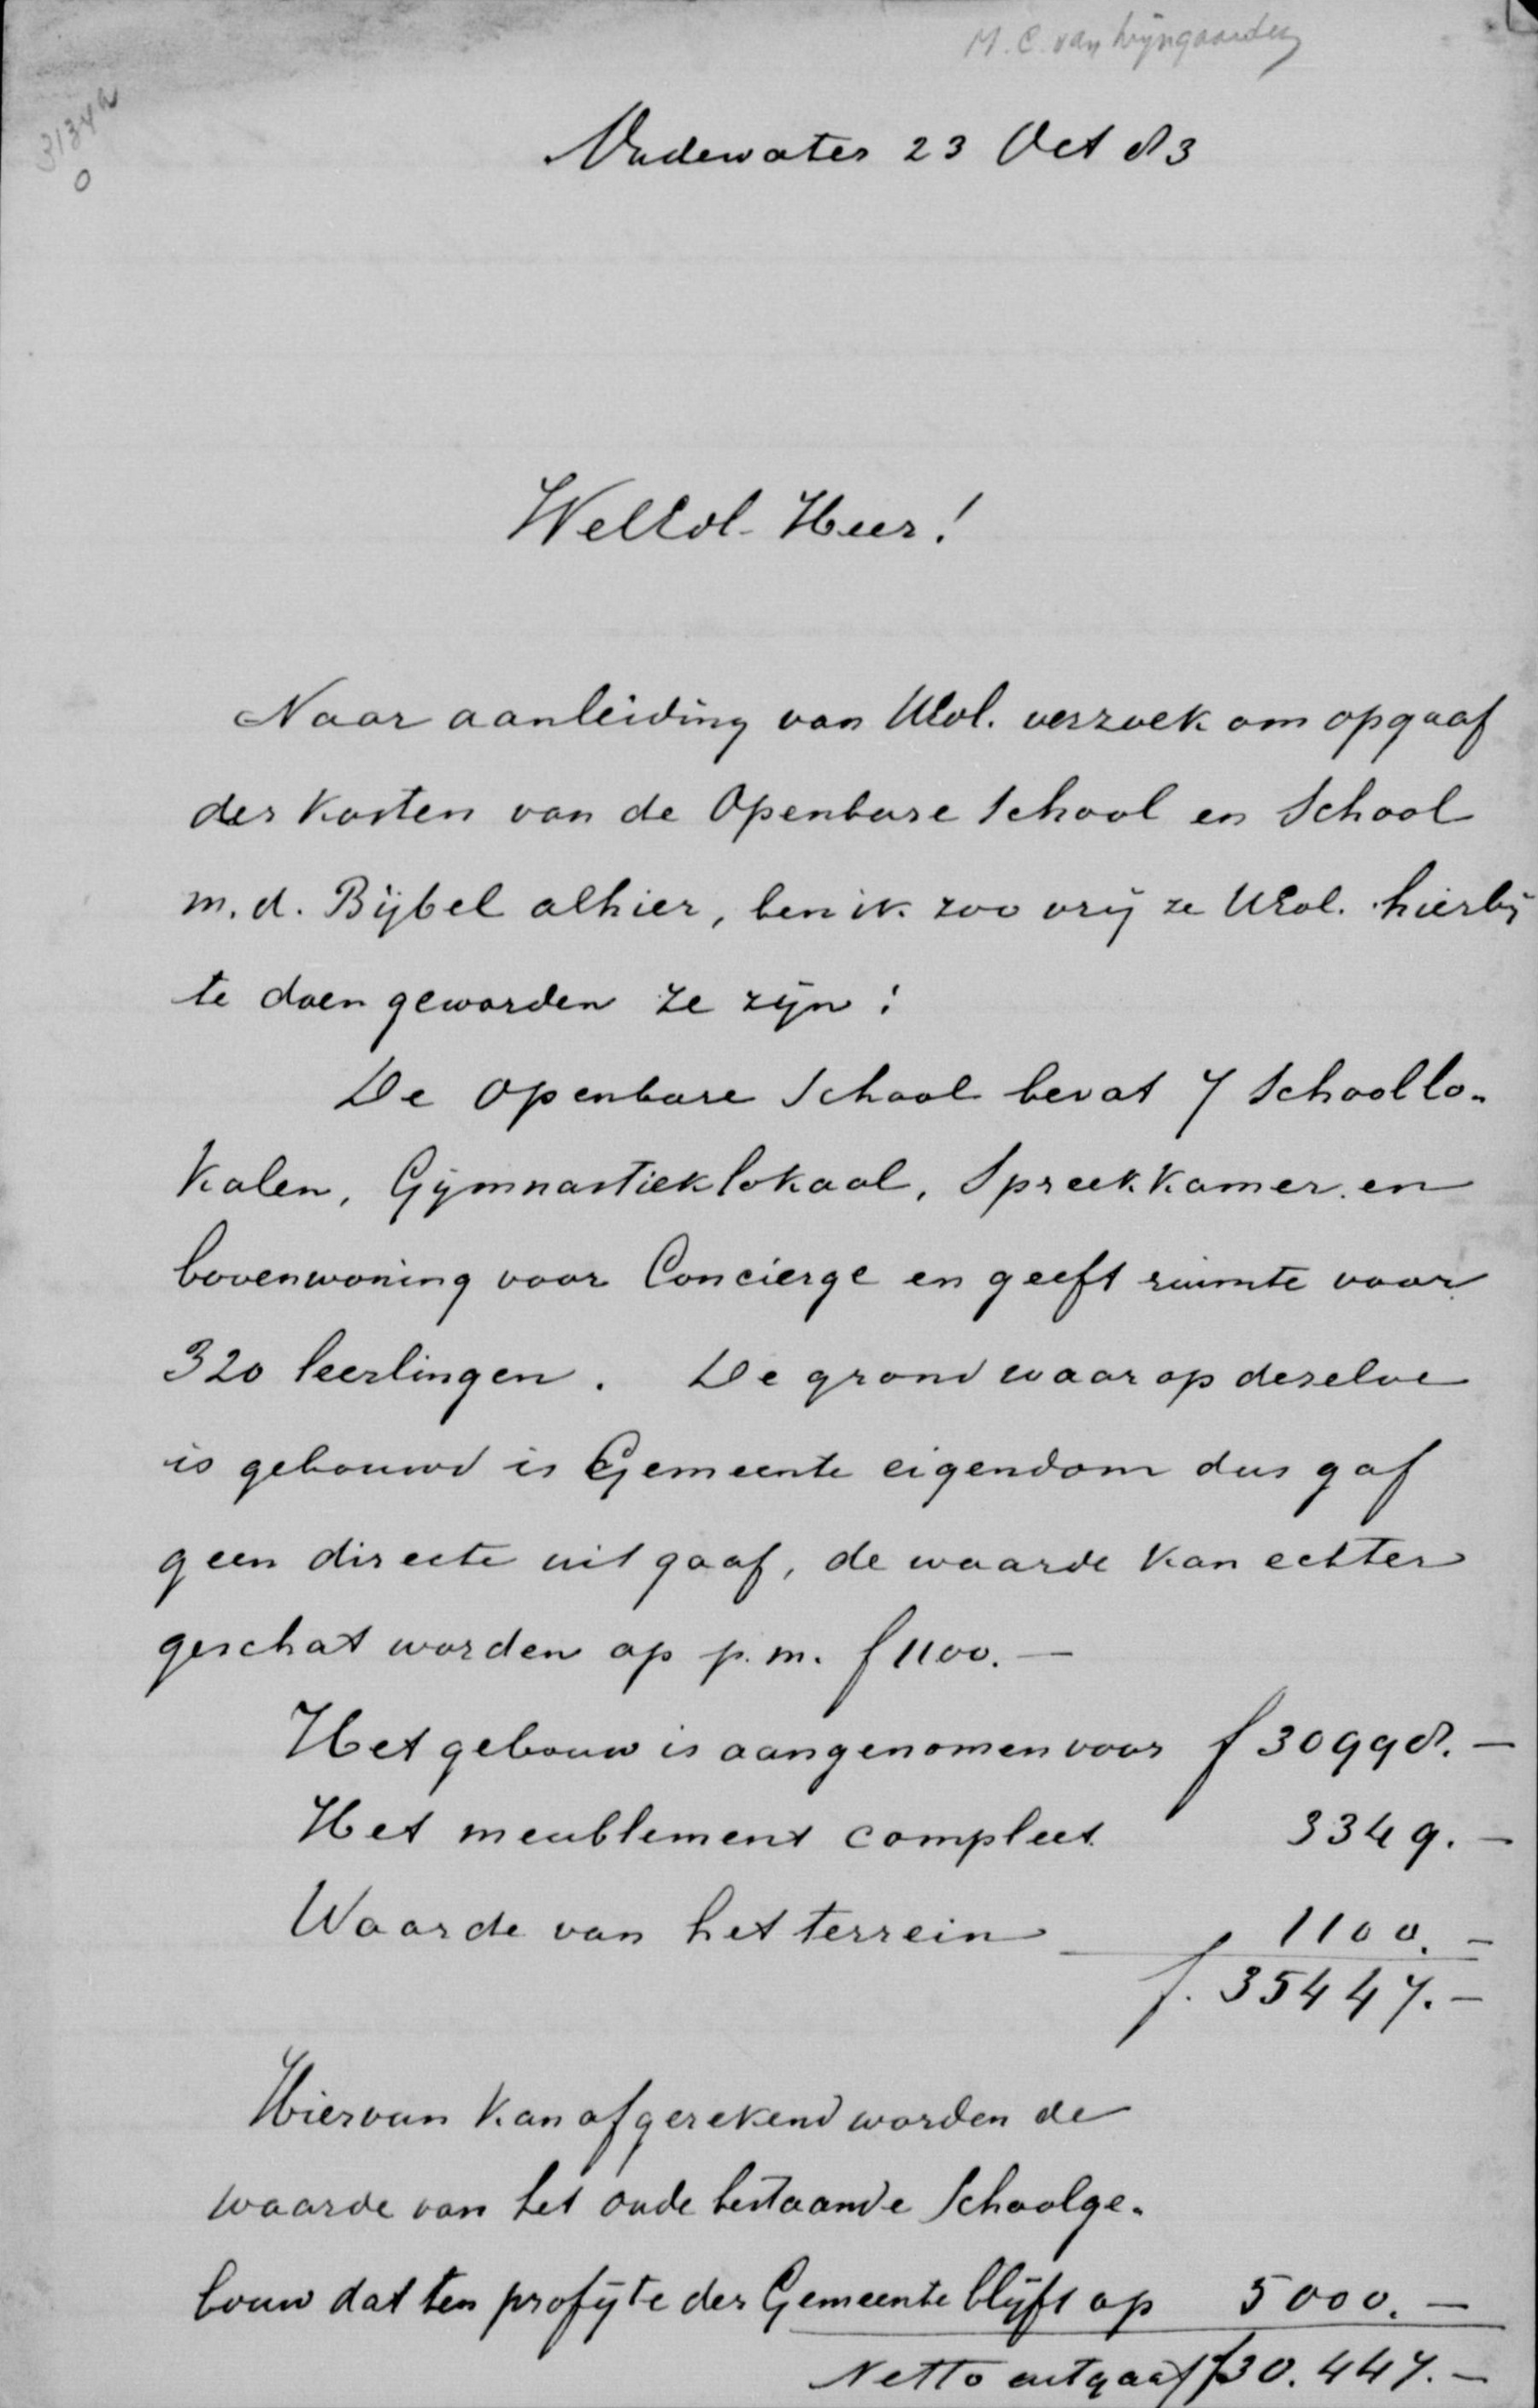 M. C. van Wijngaarden
3134a
0
Oudewater 23 Oct 83
WelEdl. Heer!
Naar aanleiding van UEdl. verzoek om opgaaf
der kosten van de Openbare School en School
m. d. Bijbel alhier, ben ik zoo vrij ze UEdl. hierbij
te doen geworden ze zijn:
De openbare School bevat 7 schoollo-
kalen, Gymnastieklokaal, Spreekkamer en
bovenwoning voor Concierge en geeft ruimte voor
320 leerlingen. De grond waarop deselve
is gebouwd is Gemeente eigendom dus gaf
geen directe uitgaaf, de waarde kan echter
geschat worden op p.m. f 1100.—
Het gebouw is aangenomen voor f 30998.—
Het meublement compleet 3349.—
Waarde van het terrein 1100.—
f. 35447.—
Hiervan kan afgerekend worden de
waarde van het oude bestaande Schoolge-
bouw dat ten profijte der Gemeente blijft op 5000.—
Netto uitgaaf f 30.447.—